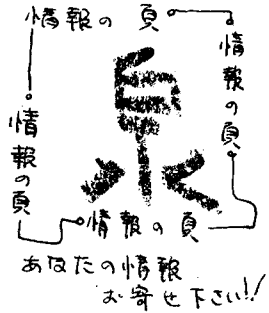 情報の頁
情報の頁
情報の頁
情報の頁
泉
あなたの情報
お寄せ下さい!!